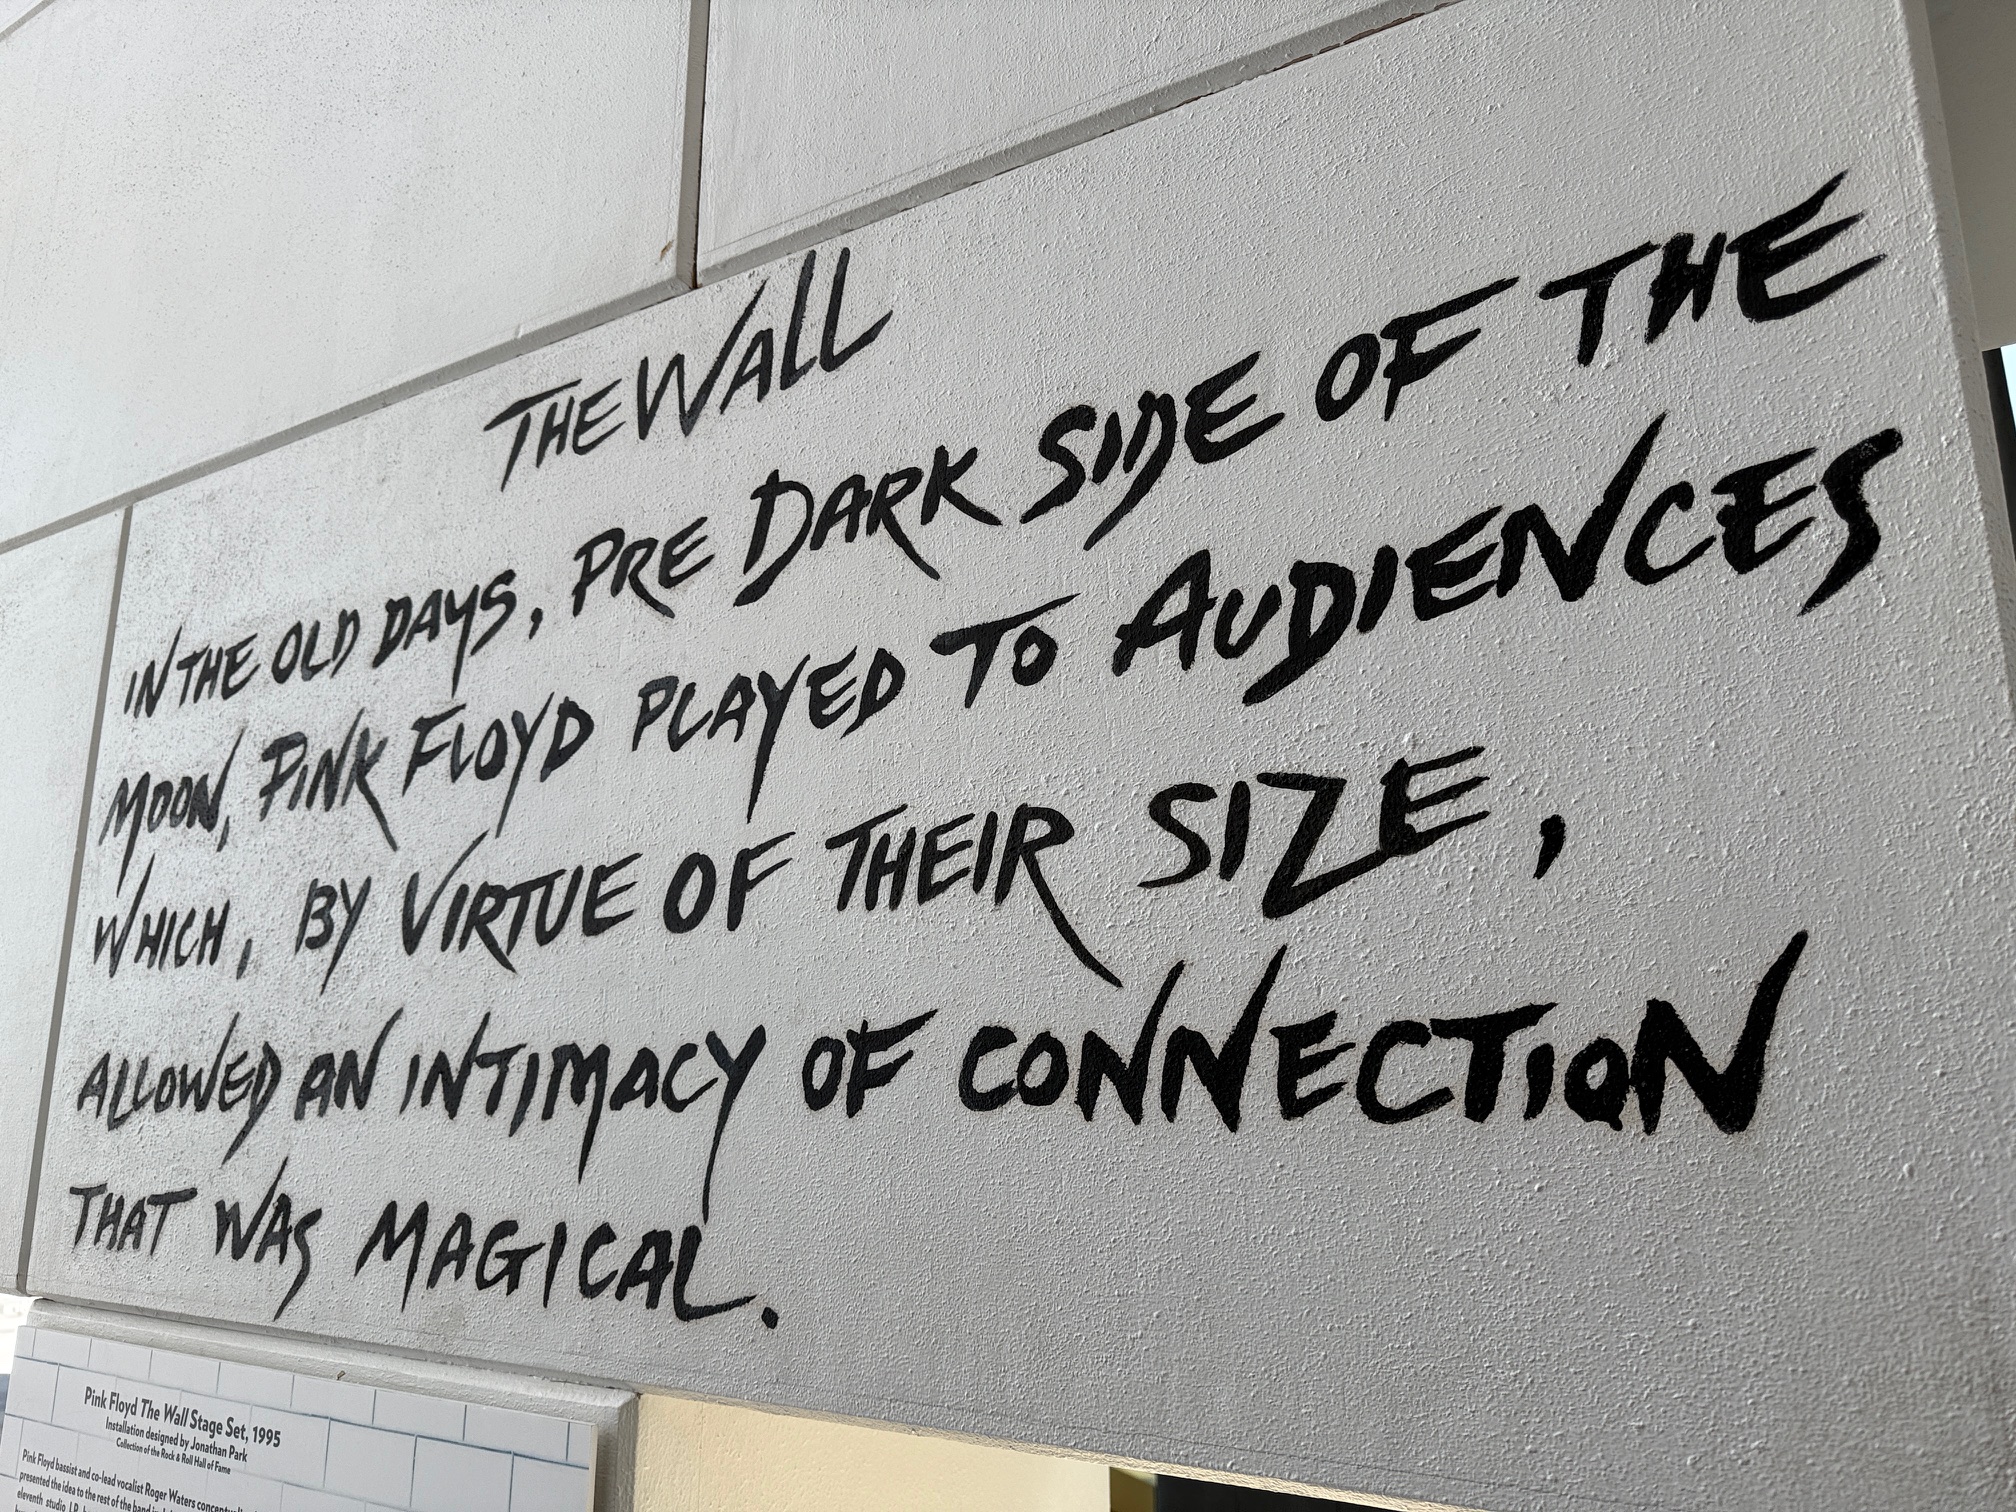 THE WALL
IN THE OLD DAYS, PRE DARK SIDE OF THE
MOON, PINK FLOYD PLAYED TO AUDIENCES
WHICH, BY VIRTUE OF THEIR SIZE,
ALLOWED AN INTIMACY OF CONNECTION
THAT WAS MAGICAL.
Pink Floyd The Wall Stage Set, 1995
Installation designed by Jonathan Park
Collection of the Rock & Roll Hall of Fame
Pink Floyd bassist and co-lead vocalist Roger Waters
presented the idea to the rest of the band
eleventh studio LP